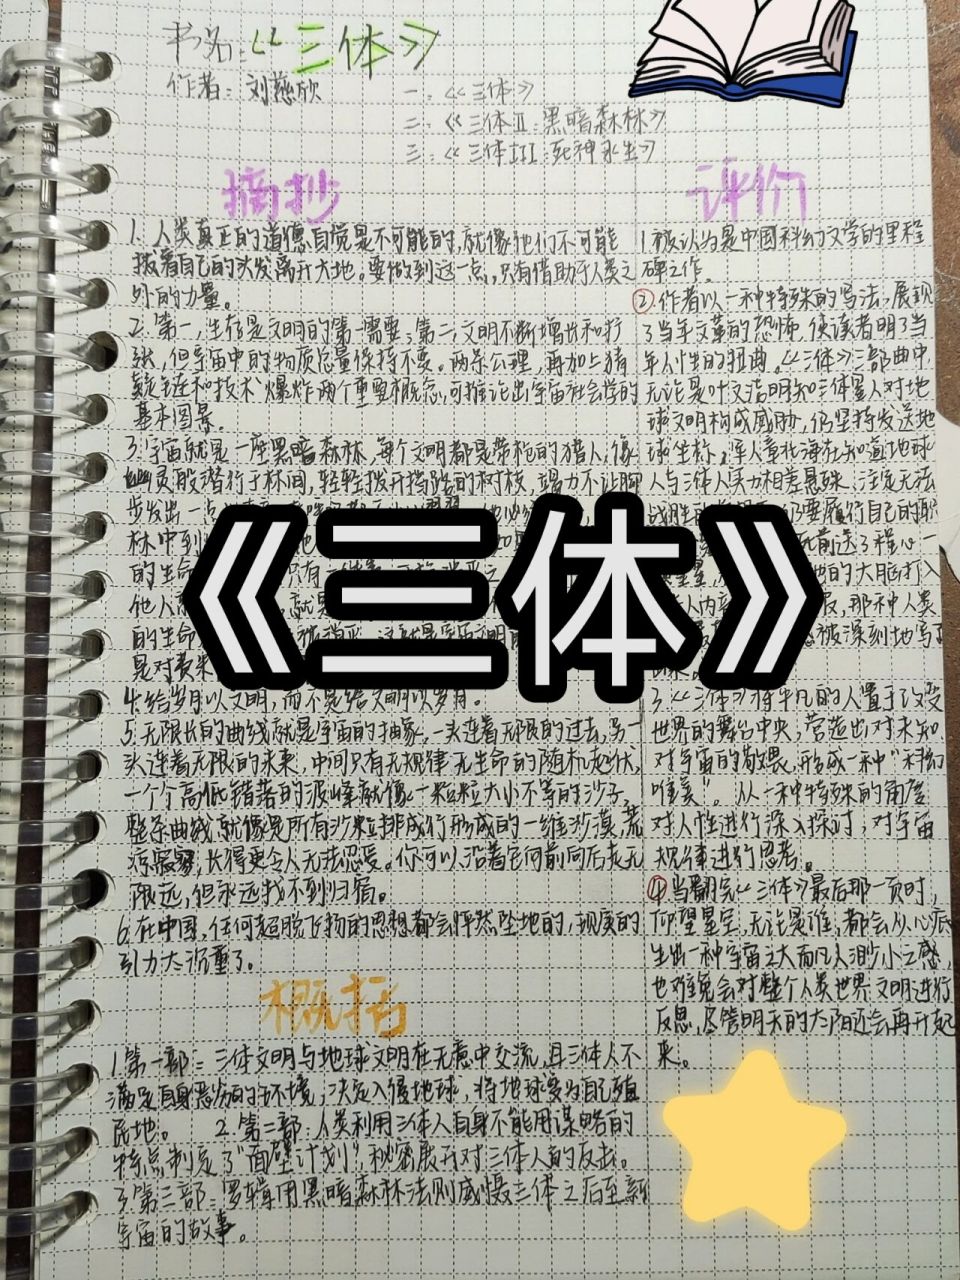 书名:《三体》
作者:刘慈欣
一:《三体》
二:《三体II:黑暗森林》
三:《三体III:死神永生》
摘抄
1.人类真正的道德自觉是不可能的,就像他们不可能
拔着自己的头发离开大地。要做到这一点,只有借助于人类之
外的力量。
2.第一,生存是文明的第一需要;第二,文明不断增长和扩
张,但宇宙中的物质总量保持不变。两条公理,再加上猜
疑链和技术爆炸两个重要概念,可推论出宇宙社会学的
基本图景。
3.宇宙就是一座黑暗森林,每个文明都是带枪的猎人,像
幽灵般潜行于林间,轻轻拨开挡路的树枝,竭力不让脚
步发出一点
林中到
的生命 只有
他人
的生命
是对费米
4.给岁月以文明,而不是给文明以岁月。
5.无限长的曲线就是宇宙的抽象,一头连着无限的过去,另一
头连着无限的未来,中间只有无规律无生命的随机起伏,
一个个高低错落的波峰就像一粒粒大小不等的沙子,
整条曲线就像是所有沙粒排成行形成的一维沙漠,荒
凉寂寥,长得更令人无法忍受。你可以沿着它向前向后走无
限远,但永远找不到归宿。
6.在中国,任何超脱飞扬的思想都会怦然坠地的,现实的
引力太沉重了。
概括
1.第一部:三体文明与地球文明在无意中交流,且三体人不
满足自身恶劣的环境,决定入侵地球,将地球变为自己殖
民地。 2.第二部:人类利用三体人自身不能用谋略的
特点制定了“面壁计划”,秘密展开对三体人的反击。
3.第三部:罗辑用黑暗森林法则威慑三体之后至新
宇宙的故事。
评价
1.被认为是中国科幻文学的里程
碑之作。
②.作者以一种特殊的写法,展现
了当年文革的恐怖,使读者明了当
年人性的扭曲。《三体》三部曲中,
无论是叶文洁明知三体星人对地
球文明构成威胁,仍坚持发送地
球坐标;军人章北海在知道地球
人与三体人实力相差悬殊,注定无法
仍要履行自己的职
前送了程心一
的大脑打入
人内 那种人类
被深刻地写了
3.《三体》将平凡的人置于改变
世界的舞台中央,营造出对未知、
对宇宙的敬畏,形成一种“科幻
唯美”。从一种特殊的角度
对人性进行深入探讨,对宇宙
规律进行思考。
④当翻完《三体》最后那一页时,
仰望星空,无论是谁,都会从心底
生出一种宇宙之大而凡人渺小之感,
也难免会对整个人类世界文明进行
反思,尽管明天的太阳还会再升起
来。
《三体》